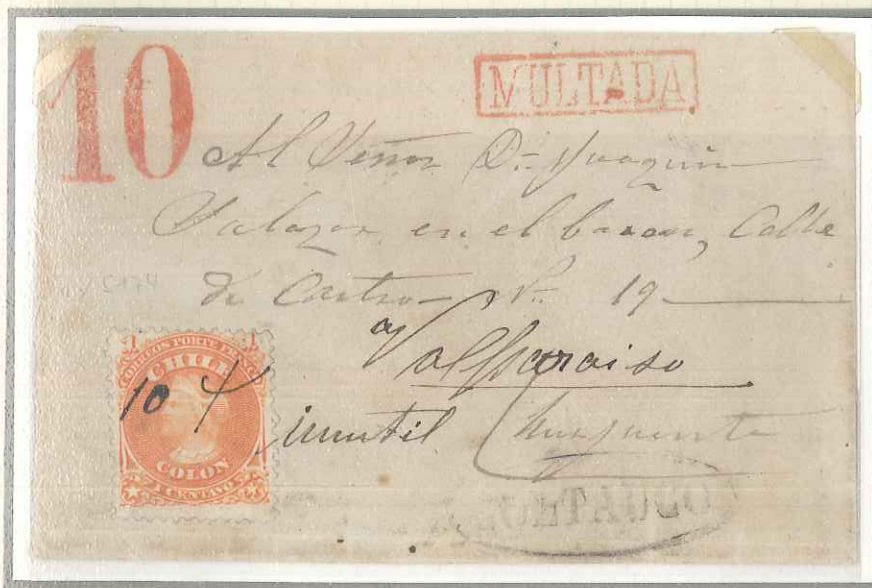 10
MULTADA
Al Señor Dn. Joaquin
Salazar en el baron, Calle
de Castro N. 19
a
Valparaiso
inutil
5174
1 1
CORREOS PORTE FRANCO
CHILE
10
COLON
1 CENTAVO